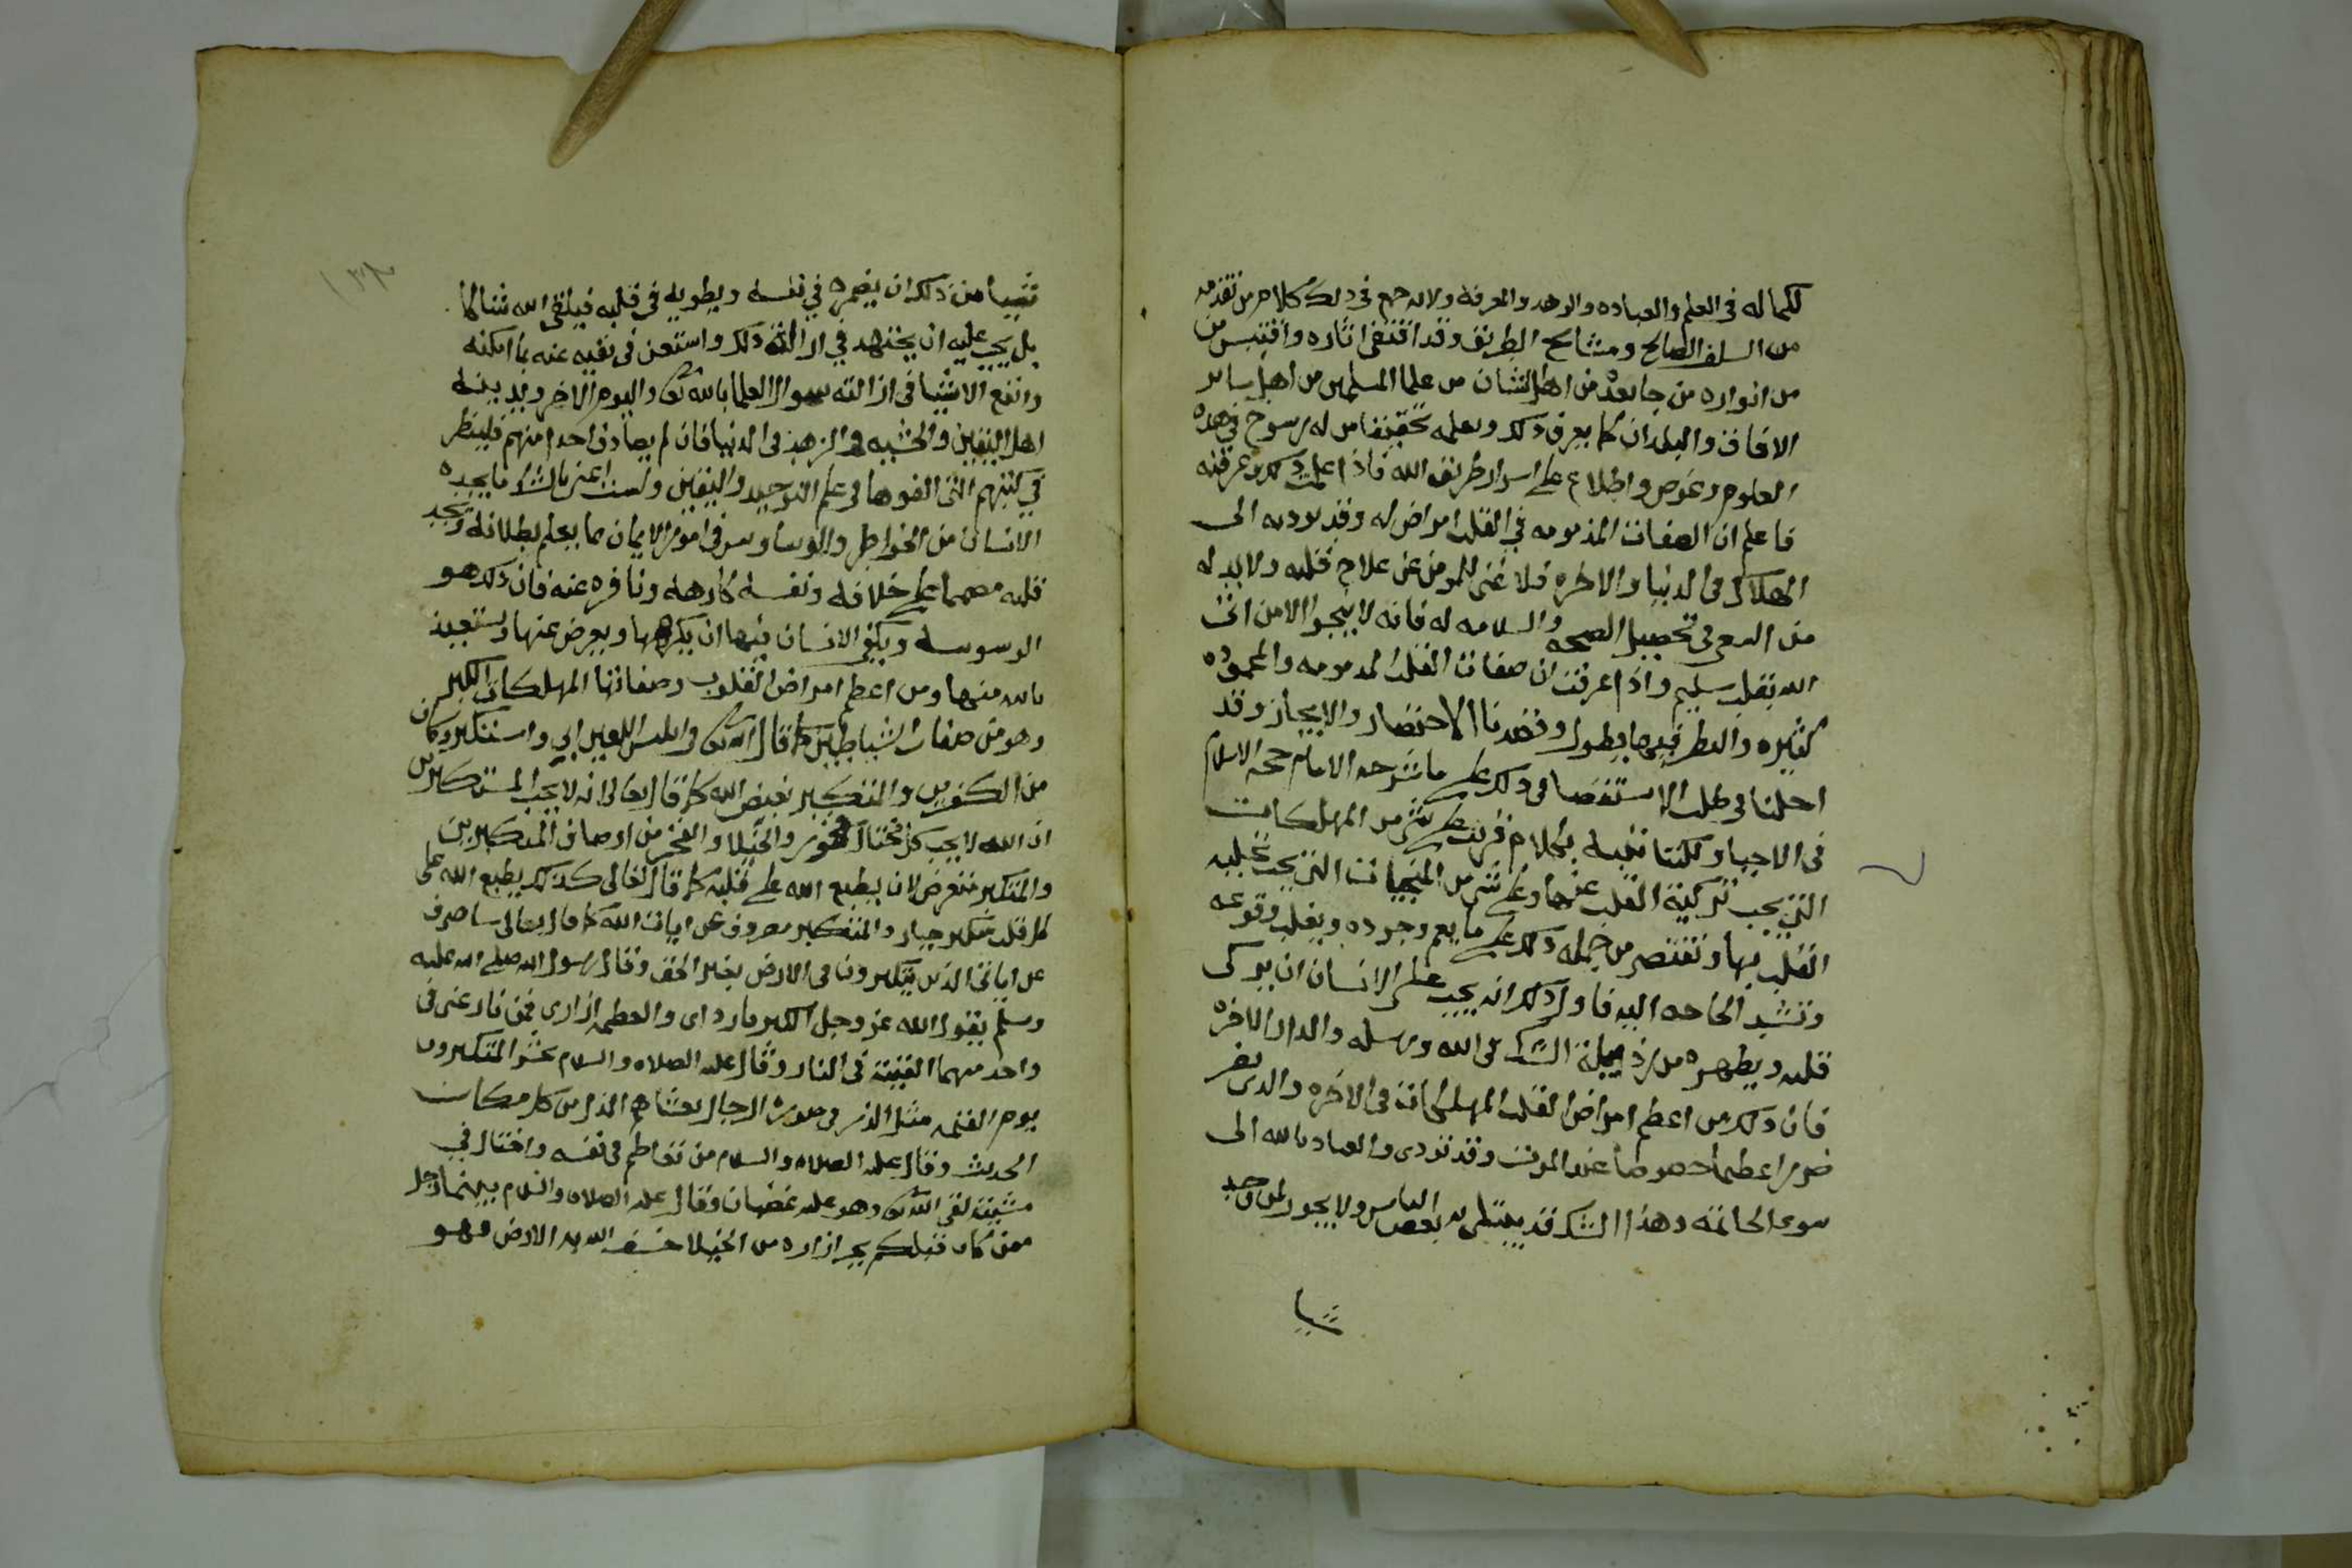 لكماله فى العلم والعباده والزهد والمعرفة ولانه جمع فى ذلك كلام من تقدمه
من السلف الصالح ومشايخ الطريق وقد اقتفى اثاره واقتبس من
من انواره من جا بعده من اهل الشان من علما المسلمين من اهل ساير
الافاق والبلدان كما يعرف ذلك ويعلمه تحقيقا من له رسوخ فى هذه
العلوم وغوص واطلاع على اسرار طريق الله فاذا علمت ذلك وعرفته
فاعلم ان الصفات المذمومه في القلب امراض له وقد توديه الى
الهلاك فى الدنيا والاخره فلا غنى للمومن عن علاج قلبه ولا بد له
من السعى فى تحصيل الصحه والسلامه له فانه لا ينجوا الا من اتى
الله بقلب سليم واذا عرفت ان صفات القلب المذمومه والمحموده
كثيره والنظر فيها يطول وقصدنا الاختصار والايجاز وقد
احلنا فى طلب الاستقصا فى ذلك على ما شرحه الامام حجة الاسلام
فى الاحيا ولكننا ننبه بكلام قريب على شى من المهلكات
التى يجب تزكية القلب عنها وعلى شى من المنجيات التى يجب تحليه
القلب بها ونقتصر من جمله ذلك على ما يعم وجوده ويغلب وقوعه
وتشتد الحاجه اليه فاول ذلك انه يجب على الانسان ان يزكى
قلبه ويطهره من رذيلة الشك فى الله ورسله والدار الاخره
فان ذلك من اعظم امراض القلب المهلكات فى الاخره والذى يضر
ضررا عظيما خصوصا عند الموت وقد تودى والعياذ بالله الى
سوء الخاتمه وهذا الشك قد يبتلى به بعض الناس ولا يجوز لمن وجد
شيا
شيا من ذلك ان يضمره في نفسه ويطويه فى قلبه فيلقى الله شاكا
بل يجب عليه ان يجتهد في ازالة ذلك واستعن فى نفيه عنه بما امكنه
وانفع الاشيا فى ازالته سوال العلما بالله تعالى واليوم الاخر وبدينه
اهل اليقين والخشيه والزهد فى الدنيا فان لم يصادف احدا منهم فلينظر
في كتبهم التى الفوها فى علم التوحيد واليقين ولست اعنى بالشك ما يجده
الانسان من الخواطر والوساوس فى امور الايمان مما يعلم بطلانه ويجد
قلبه مصمما على خلافه ونفسه كارهه ونافره عنه فان ذلك هو
الوسوسه ويكفى الانسان فيها ان يكرهها ويعرض عنها ويستعيذ
بالله منها ومن اعظم امراض القلوب وصفاتها المهلكات الكبر
وهو من صفات الشياطين كما قال الله تعالى فى ابليس اللعين ابى واستكبر وكان
من الكفرين والمتكبر بغيض الله كما قال تعالى انه لا يحب المستكبرين
ان الله لا يحب كل مختال فخور والخيلا والفخر من اوصاف المتكبرين
والمتكبر متعرض لان يطبع الله على قلبه كما قال تعالى كذلك يطبع الله على
كل قلب متكبر جبار والمتكبر مصروف عن ايات الله كما قال تعالى ساصرف
عن اياتى الذين يتكبرون فى الارض بغير الحق وقال رسول الله صلى الله عليه
وسلم يقول الله عز وجل الكبريا رداى والعظمه ازارى فمن نازعنى فى
واحد منهما القيته فى النار وقال عليه الصلاه والسلام يحشر المتكبرون
يوم القيمه مثل الذر فى صورة الرجال يغشاهم الذل من كل مكان
الحديث وقال عليه الصلاه والسلام من تعاظم فى نفسه واختال في
مشيته لقى الله تعالى وهو عليه غضبان وقال عليه الصلاه والسلام بينما رجل
ممن كان قبلكم يجر ازاره من الخيلا خسف الله به الارض فهو